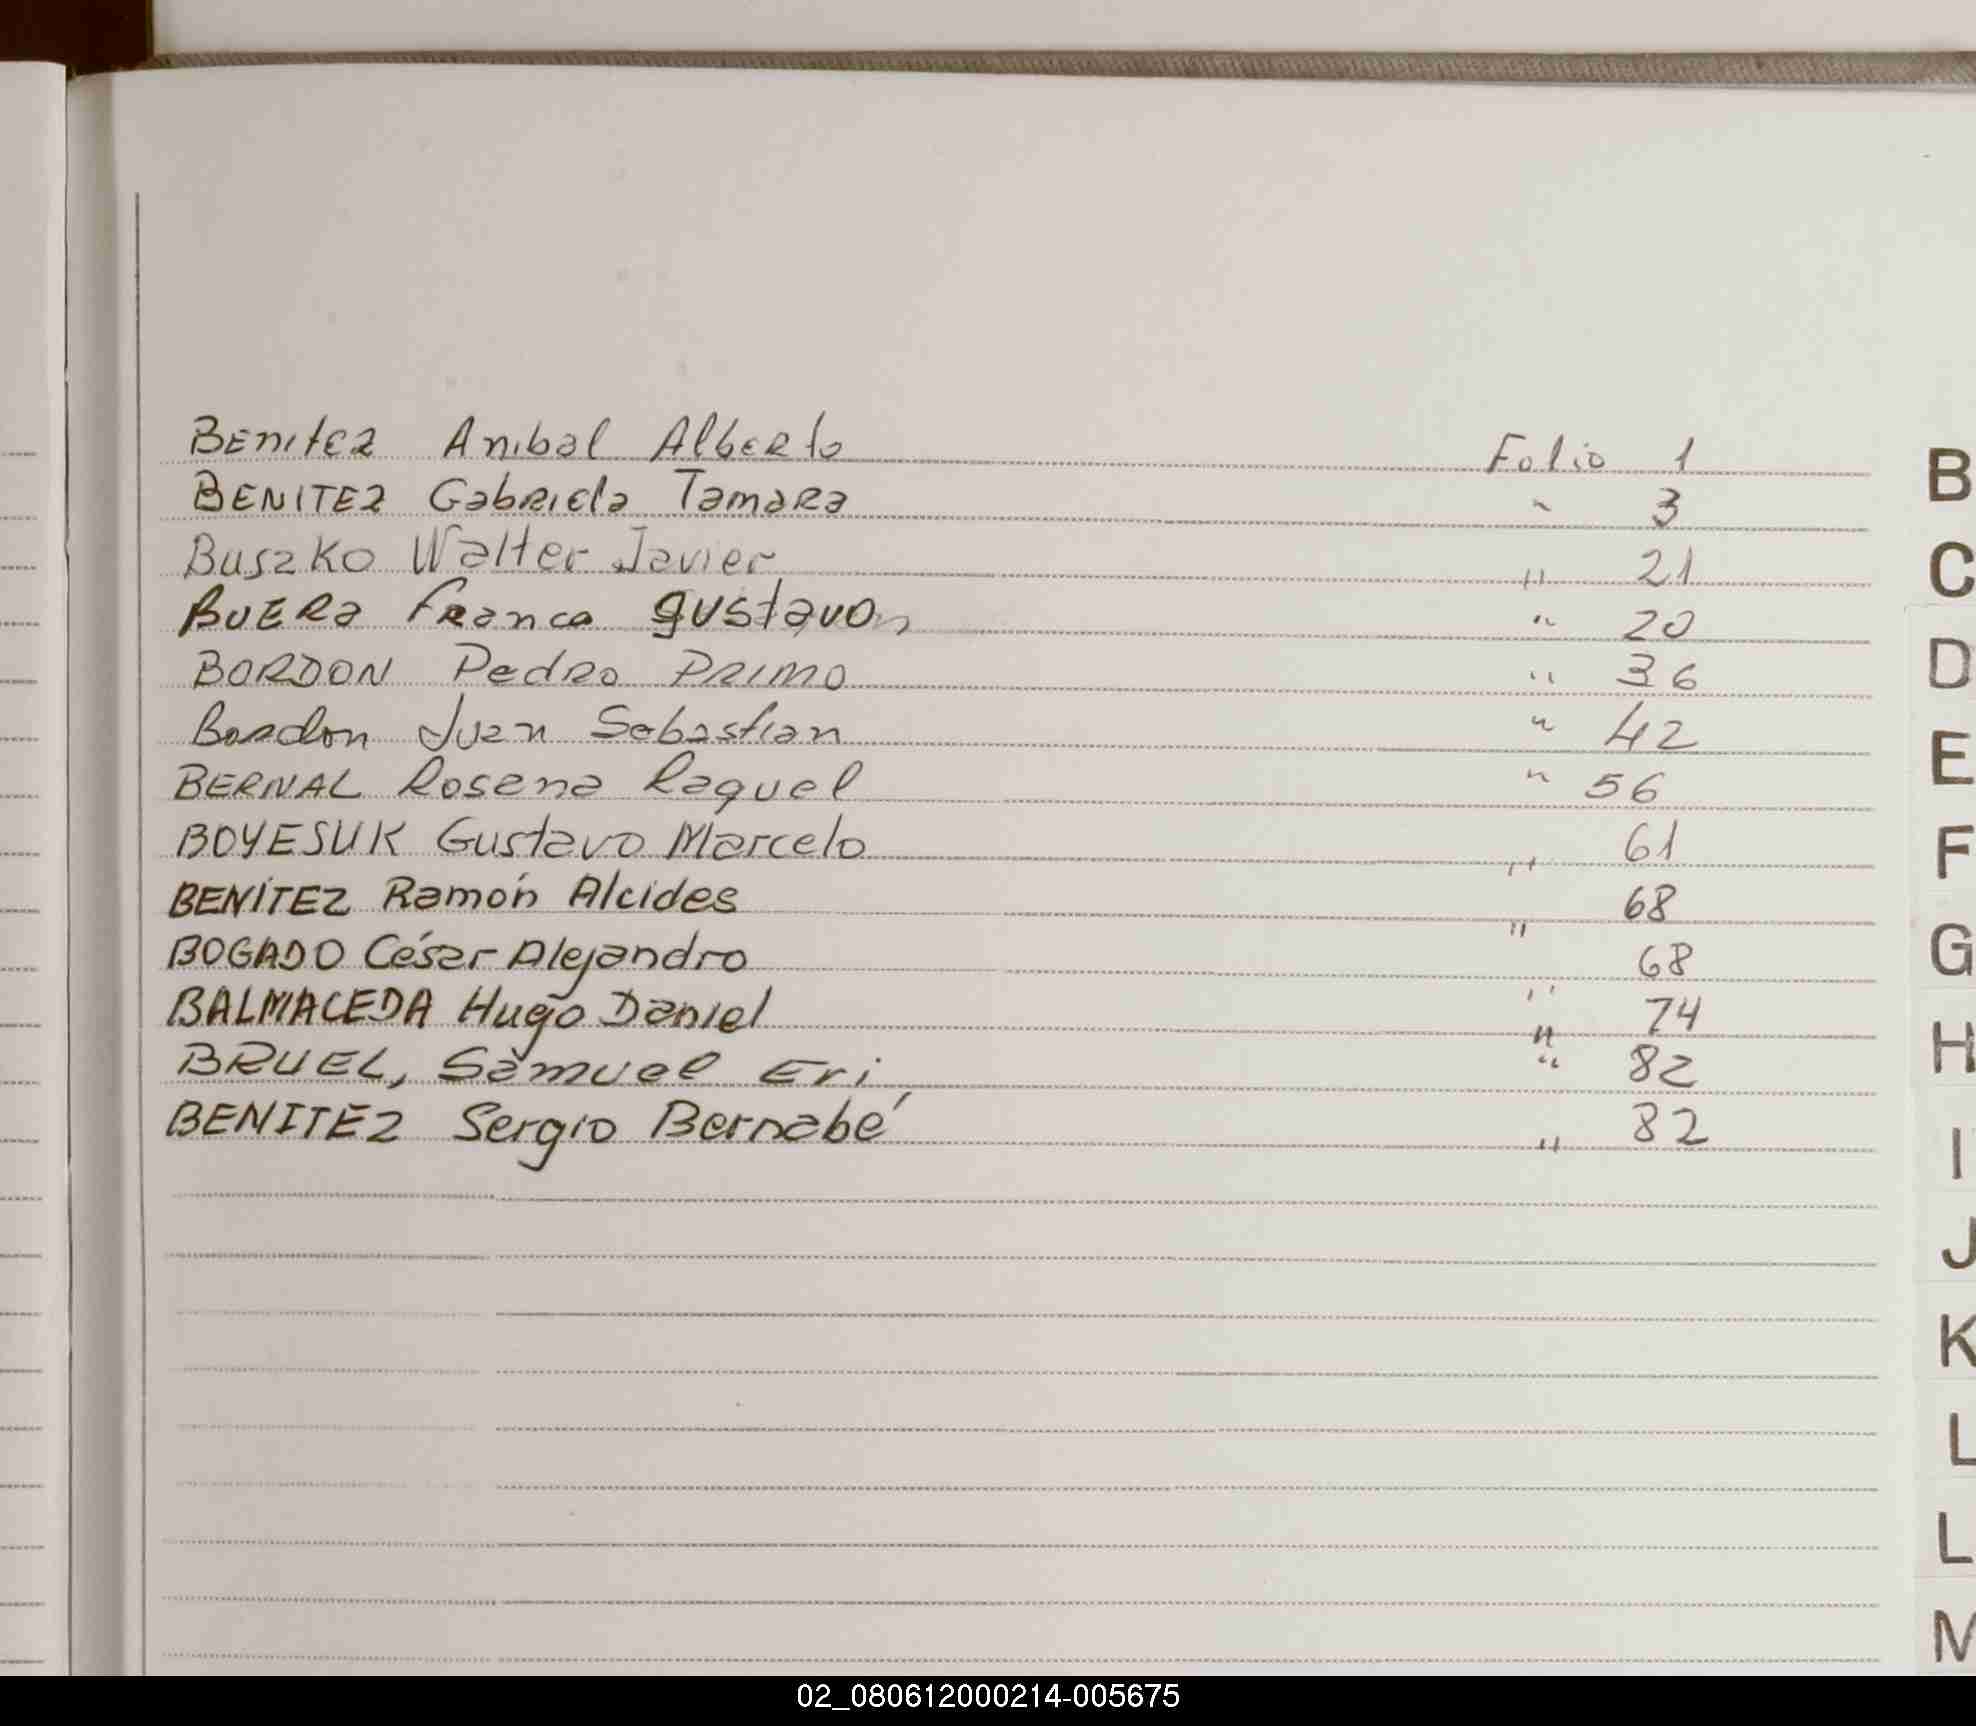 Benitez Anibal Alberto Folio 1
BENITEZ Gabriela Tamara " 3
Buszko Walter Javier " 21
BUERA Franco gustavo " 20
BORDON Pedro Primo " 36
Bordon Juan Sebastian " 42
BERNAL Rosana Raquel " 56
BOYESUK Gustavo Marcelo " 61
BENÍTEZ Ramón Alcides " 68
BOGADO César Alejandro " 68
BALMACEDA Hugo Daniel " 74
BRUEL, Samuel Eri " 82
BENITEZ Sergio Bernabé " 82
B
C
D
E
F
G
H
I
J
K
L
L
M
02_080612000214-005675